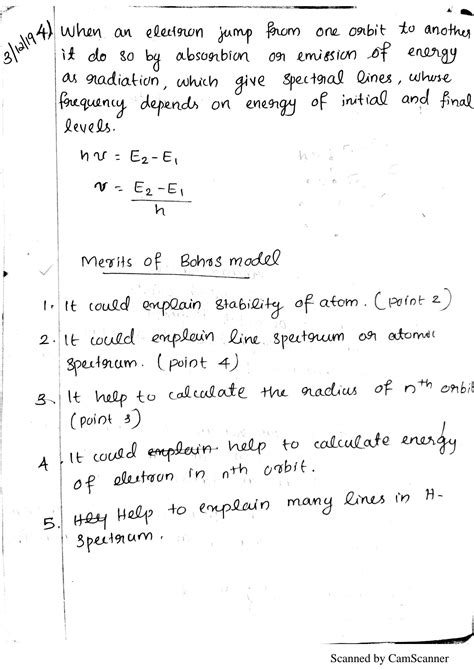 3/12/19
4) When an electron jump from one orbit to another
it do so by absorbion or emission of energy
as radiation, which give spectral lines, whose
frequency depends on energy of initial and final
levels.
hν = E2 - E1
ν = E2 - E1
h
Merits of Bohrs model
1. It could explain stability of atom. (point 2)
2. It could explain line spectrum or atomic
spectrum. (point 4)
3. It help to calculate the radius of nth orbit
(point 3)
4. It could explain help to calculate energy
of electron in nth orbit.
5. Hey Help to explain many lines in H-
spectrum.
Scanned by CamScanner